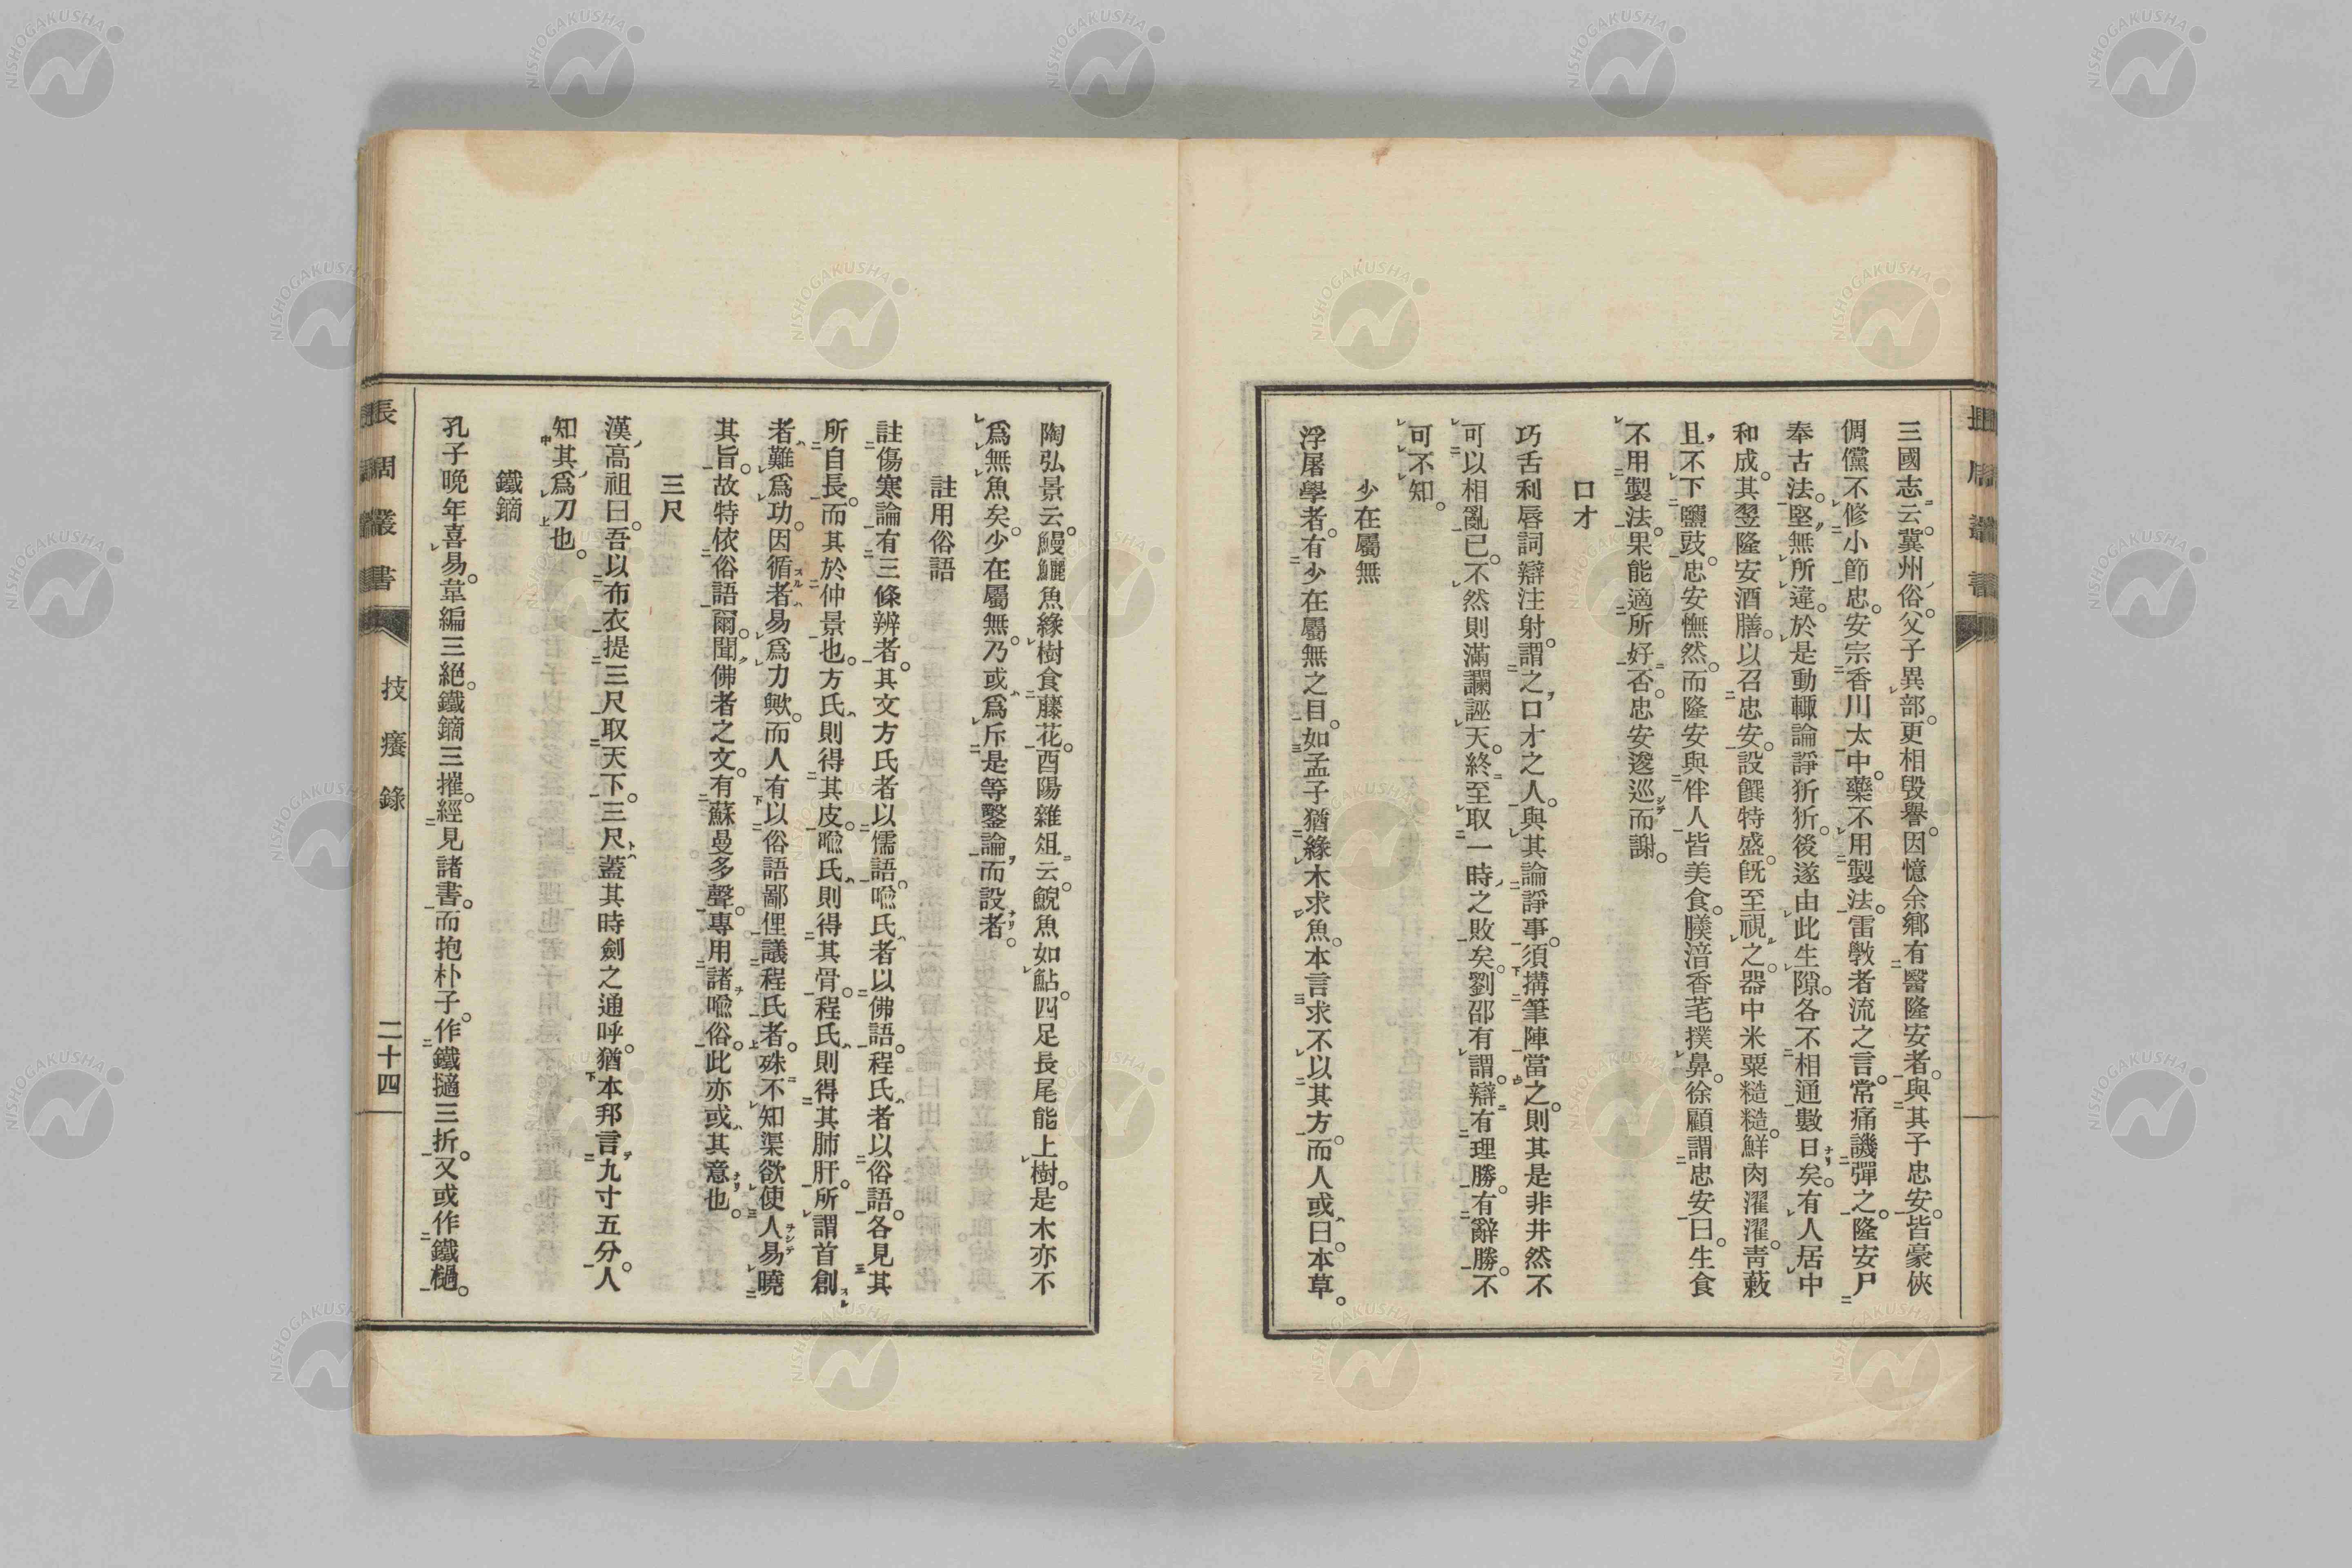 三國志云。冀州俗。父子異部。更相毀譽。因憶余鄉有醫隆安者。與其子忠安。皆豪俠
倜儻不修小節。忠安宗香川太中。藥不用製法。雷斆者流之言。常痛譏彈之。隆安尸
奉古法。堅無所違。於是動輒論諍狺狺。後遂由此生隙。各不相通數日矣。有人居中
和成。其翌隆安酒膳。以召忠安。設饌特盛。旣至視之。器中米粟糙糙。鮮肉濯濯。靑蔌
且不下鹽豉。忠安憮然。而隆安與伴人皆美食。膜湆香芼撲鼻。徐顧謂忠安曰。生食
不用製法。果能適所好否。忠安逡巡而謝。
口才
巧舌利唇詞辯注射。謂之口才之人。與其論諍事。須搆筆陣當之。則其是非井然不
可以相亂已。不然則滿讕誣天。終至取一時之敗矣。劉邵有謂。辯有理勝。有辭勝。不
可不知。
少在屬無
浮屠學者。有少在屬無之目。如孟子猶緣木求魚。本言求不以其方。而人或曰。本草。
陶弘景云。鰻鱺魚緣樹食藤花。酉陽雜俎云。鯢魚如鮎。四足長尾能上樹。是木亦不
爲無魚矣。少在屬無。乃或爲斥是等鑿論而設者。
註用俗語
註傷寒論有三條辨者。其文方氏者以儒語。喩氏者以佛語。程氏者以俗語。各見其
所自長。而其於仲景也。方氏則得其皮。喩氏則得其骨。程氏則得其肺肝。所謂首創
者難爲功。因循者易爲力歟。而人有以俗語鄙俚議程氏者。殊不知渠欲使人易曉
其旨。故特依俗語爾。聞佛者之文。有蘇曼多聲。專用諸喩俗。此亦或其意也。
三尺
漢高祖曰。吾以布衣提三尺取天下。三尺蓋其時劍之通呼。猶本邦言九寸五分。人
知其爲刀也。
鐵鏑
孔子晩年喜易。韋編三絕。鐵鏑三摧。經見諸書。而抱朴子。作鐵擿三折。又或作鐵檛。
長周叢書
技癢錄
二十四